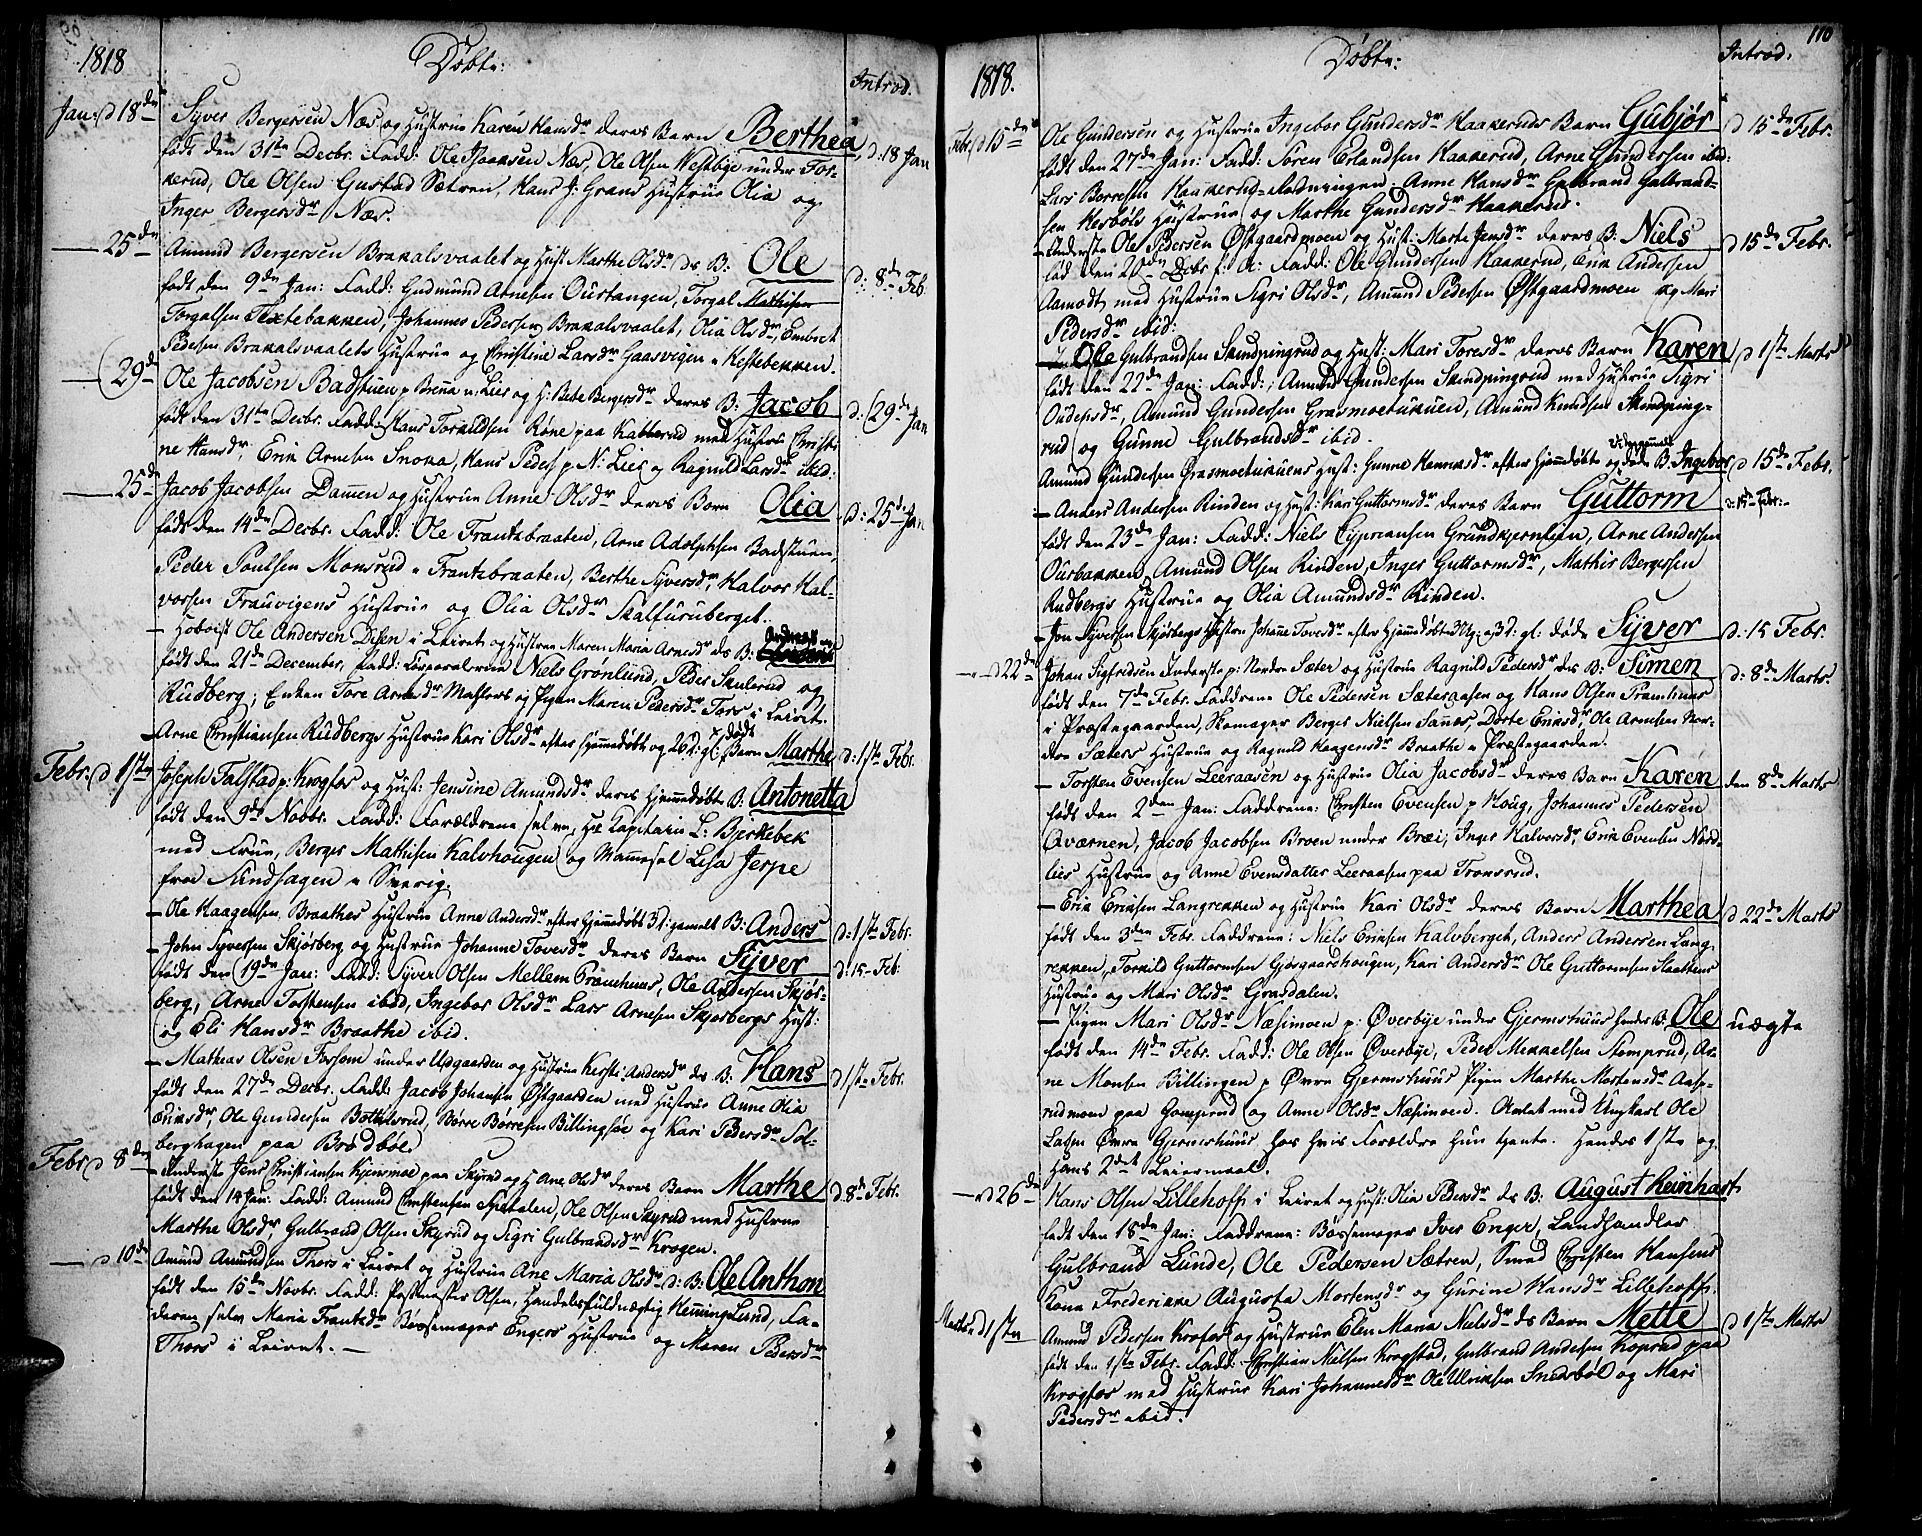 1818
Døbte:
Introd.
Jan: d 18de
Syver Bergersen Næs og Hustrue Karen Hansdr deres Barn Berthea, d: 18 Jan
født den 31te Decbr. Fadd: Ole Isaksen Næs, Ole Olsen Westbye under For-
kerud, Ole Olsen Gustad Sætren, Hans J: Grans Hustrue Olia og
Inger Bergersdr Næs.
25de
Amund Bergersen Brakalsvaalet og Hust Marthe Olsdr ds B: Ole d: 8de Feb.
født den 9de Jan: Fadd: Gudmund Arnesen Ourtangen, Torgal Mathisen
Torgalsen Textebakken, Johannes Pedersen Brakalsvaalet, Olia Olsdr, Embret
Pedersen Brakalsvaalets Hustrue og Christine Larsdr Gaasvigen v Kestebekken.
(29de
Ole Jacobsen Badstuen p Brena u: Lies og H: Bete Bergersdr deres B: Jacob d: (29de Jan
født den 31te Decbr. Fadd: Hans Torkildsen Røne paa Kabberud med Hustru Christi-
ne Hansdr, Erik Arnesen Snoka, Hans Peders p N: Lies og Ragnild Larsdr ibid:
25de
Jacob Jacobsen Dammen og Hustrue Anne Olsdr deres Barn Olia d: 25de Jan
født den 14de Decbr. Fadd: Ole Frantzbraaten, Arne Adolphsen Badstuen,
Peder Poulsen Monsrud v Frantzbraaten, Berthe Syversdr, Halvor Hal-
vorsen Frauvigens Hustrue og Olia Olsdr Skalfuruberget.
– Hoboist Ole Andersen Disen i Leiret og Hustrue Maren Maria Arnesdr ds B:
født den 21de December, Fadd: Corporalerne Niels Grønlund, Peder Skulerud og
Rudberg; Enken Tore Arnesdr Masters og Pigen Maren Pedersdr Tors i Leiret.
Arne Christiansen Rudbergs Hustrue Kari Olsdr efter Hjemmdøbt og 26 d: gl: dødt Barn Marthe d: 1ste Febr.
Febr. d 1ste
Joseph Falstad p: Krogfos og Hust: Jensine Amundsdr deres Hjemmdøbte B: Antonetta
født den 9de Novbr. Fadd: Forældrene selve, Hr Kapitain L: Bjerkebek
med Frue, Berger Mathisen Kalvhougen og Mammesel Lisa Jerpe
fra Sundhagen v Sverig.
– Ole Haagensen Braathes Hustrue Anne Andersdr efter Hjemdøbt 3 d: gammelt B: Anders d: 1ste Febr.
– John Syversen Skjørberg og Hustrue Johanne Tovesdr deres Barn Syver d: 15. Feb:
født den 19de Jan: Fadd: Syver Olsen Mellem Præmhuus, Ole Andersen Skjør-
berg, Arne Tostensen ibid, Ingebor Olsdr Lars Arnesen Skjorbergs Hust:
og Eli Hansdr Braathe ibid.
– Mathias Olsen Forsom under Upgaarden og Hustrue Kersti Andersdr ds B. Hans d 1ste Febr.
født den 27de Decbr. Fadd: Jacob Johansen Østgaarden med Hustrue Anne Olia
Eriksdr, Ole Gundersen Bottilsrud, Børre Børresen Billingsøe og Kari Pedersdr Sol-
berghagen paa Brødbøl.
Febr d 8de
– Inderste Jens Christiansen Kjensmoe paa Skyrud og H Ane Olsdr deres Barn Marthe d 8de Febr.
født den 14 Jan: Fadd: Amund Christensen Spetalen, Ole Olsen Skyrud med Hustrue
Marthe Olsdr, Gulbrand Olsen Skyrud og Sigri Gulbrandsdr Krogen.
d 10de
Amund Amundsen Thors i Leiret og Hustrue Ane Maria Olsdr d: B: Ole Anthon
født den 15de Novbr. Fadd: Postmester Olsen, Handelsfuldmægtig Henning Lund, Fa-
deren selv, Maria Frantsdr Bøssemager Engers Hustrue og Maren Pedersdr
Thors i Leiret. –
110
1818.
Døbte:
Introd.
Febr. d 15de
Ole Gundersen og Hustrue Ingebor Gundersdr Haakeruds Barn Gubjør d 15de Febr.
født den 27de Jan: Fadd: Søren Erlandsen Haakerud, Arne Gundersen ibid
Lars Børresen Haakerud-Ladningen, Anne Hansdr Gulbrand Gulbrand-
sen Kesbøls Hustrue og Marthe Gundersdr Haakerud.
– Inderste Ole Pedersen Østgaardmoen og Hust: Marte Jensdr deres B: Niels d 15de Febr.
fød den 26de Decbr f: A: Fadd: Ole Gundersen Haakerud, Erik Andersen
Aamodt med Hustrue Sigri Olsdr, Amund Pedersen Østgaardmoen og Mari
Pedersdr ibid:
Ole Gulbrandsen Skindpingrud og Hust: Mari Toresdr deres Barn Karen d 1ste Marts
født den 22de Jan: Fadd: Amund Gundersen Skindpingrud med Hustrue Sigri
Oudensdr, Amund Gundersen Grasmoetukuen, Amund Knudsen Skindping-
rud og Gunne Gulbrandsdr ibid.
Amund Gundersen Grasmoetukuens Hust: Gunne Hennesdr efter Hjemdøbte og døde B. Ingebor d 15de Febr.
– Anders Andersen Rinden og Hust: Kari Guttormsdr deres Barn Guttorm d: 15de Febr:
født den 23de Jan: Fadd: Niels Cypriansen Grundkjernlien, Arne Andersen
Ourbakken, Amund Olsen Rinden, Inger Guttormsdr, Mathis Bergersen
Rudbergs Hustrue og Olia Amundsdr Rinden.
– Jon Syversen Skjørbergs Hustru Johanne Tovesdr efter Hjemdøbte 3 Ug: og 3 d: gl: døde Syver d: 15 Febr.
d 22de
Johan Sigfridsen Inderste p: Nordre Sæter og Hustrue Ragnild Pedersdr ds B: Simen d: 8de Marts.
født den 7de Febr. Faddrene Ole Pedersen Sæteraasen og Hans Olsen Framhuus
i Præstegaarden, Skomager Berger Nielsen Sannes, Dorte Eriksdr, Ole Arnesen Nor-
dre Sæters Hustrue og Ragnild Haagensdr Braathe v Præstegaarden.
– Torsten Evensen Leeraasen og Hustrue Olia Jacobsdr deres Barn Karen den 8de Marts
født den 2den Jan: Faddrene: Christen Evensen p Houg, Johannes Pedersen
Qværnen, Jacob Jacobsen Broen under Bræi, Inger Halvorsdr, Erik Evensen Nord-
lies Hustrue og Anne Evensdatter Leeraasen paa Tronsrud.
– Erik Eriksen Langrekken og Hustrue Kari Olsdr deres Barn Marthea d 22de Marts
født den 3den Febr. Faddrene: Niels Eriksen Kalvberget, Anders Andersen Lang-
rekken, Torkild Guttormsen Gjøsgaardhougen, Kari Andersdr Ole Guttormsen Slaattens
Hustrue og Mari Olsdr Grasdalen.
– Pigen Mari Olsdr Næsimoen p: Øverbye under Gjermshuus hendes B: Ole uægte
født den 14de Febr. Fadd: Ole Olsen Øverbye, Peder Mikkelsen Stomprud, Ar-
ne Monsen Billingen p Øvre Gjermshuus Pigen Marthe Mortensdr Aasp-
rudmoen paa Gonsrud og Anne Olsdr Næsimoen. Avlet med Ungkarl Ole
Larsen Øvre Gjermshuus, hos hvis Forældre hun tjente. Hendes 1ste og
Hans 2det Leiermaal.
d 26de
Hans Olsen Lillehoff i Leiret og Hust: Olia Pedersdr ds B: August Reinhart
født den 18de Jan: Faddrene: Bøssemager Iver Enger, Landhandler
Gulbrand Lunde, Ole Pedersen Sætren, Smed Christen Hansens
Kone Frederikke Augusta Mortensdr og Gurine Hansdr Lillehoff.
Marts d 1ste
Amund Pedersen Krofos og Hustrue Elen Maria Nielsdr ds Barn Mette d 1ste Marts
født den 1ste Febr. Fadd: Christian Nielsen Krogstad, Gulbrand Andersen Koprud paa
Krogfos med Hustrue Kari Johannesdr Ole Ulriksen Snerbøl og Mari
Pedersdr ibid.